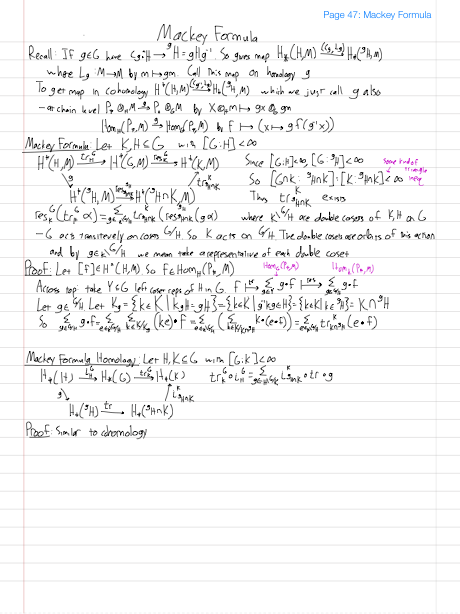 Page 47: Mackey Formula
Mackey Formula
Recall: If g∈G have c_g: H → ᵍH = gHg⁻¹. So gives map H_*(H,M) →^{(c_g, L_g)} H_*(ᵍH,M)
where L_g: M→M by m↦gm. Call this map on homology g
To get map in cohomology H*(H,M) → H*(ᵍH,M) which we just call g also
- at chain level P_* ⊗_H M →^g P_* ⊗_{ᵍH} M by x⊗m ↦ gx ⊗ gm
Hom_H(P_*,M) →^g Hom_{ᵍH}(P_*,M) by F ↦ (x ↦ g f(g⁻¹x))
Mackey Formula: Let K,H ≤ G with [G:H]<∞
H*(H,M) →^{tr_H^G} H*(G,M) →^{res_K^G} H*(K,M) Since [G:H]<∞, [G:ᵍH]<∞ some kind of triangle ineq
So [G∩K: ᵍH∩K] ≤ [K: ᵍH∩K] < ∞
H*(ᵍH,M) → H*(ᵍH∩K,M) Thus tr exists
res_K^G(tr_H^G α) = Σ_{g∈K\G/H} tr^K_{ᵍH∩K}(res^{ᵍH}_{ᵍH∩K}(gα)) where K\G/H are double cosets of K,H in G
- G acts transitively on cosets G/H. So K acts on G/H. The double cosets are orbits of this action
and by g∈K\G/H we mean take a representative of each double coset
Proof: Let [F]∈H*(H,M) So F∈Hom_H(P_*,M) Hom_G(P_*,M) Hom_K(P_*,M)
Across top: take Y≤G left coset reps of H in G. F ↦ Σ_{g∈Y} g·F ↦^{res} Σ g·F
Let g∈G/H. Let K_g = {k∈K | kgH = gH} = {k∈K | g⁻¹kg∈H} = {k∈K | k∈ᵍH} = K∩ᵍH
So Σ_{g∈G/H} g·F = Σ_{e∈K\G/H} Σ_{k∈K/K_e} (ke)·F = Σ (Σ k·(e·F)) = Σ tr (e·F)
Mackey Formula Homology: Let H,K≤G with [G:K]<∞
H_*(H) → H_*(G) →^{tr_K^G} H_*(K) tr_K^G ∘ L_H^G = Σ L^K_{ᵍH∩K} ∘ tr ∘ g
g↘ ↗ L^K_{ᵍH∩K}
H_*(ᵍH) →^{tr} H_*(ᵍH∩K)
Proof: Similar to cohomology